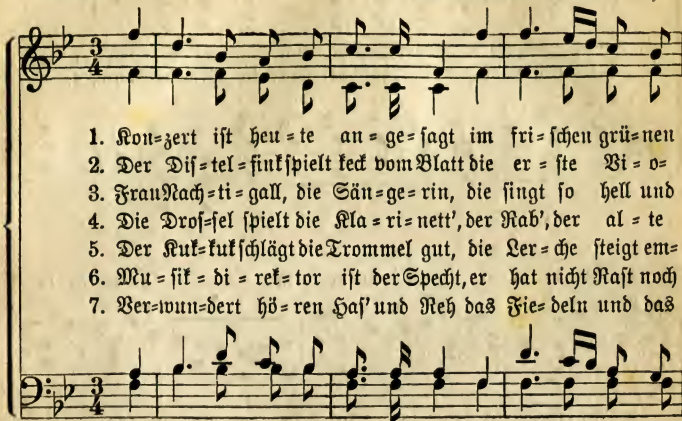 1. Kon=zert ist heu=te an=ge=sagt im fri=schen grü=nen
2. Der Dis=tel=fink spielt keck vom Blatt die er=ste Vi=o=
3. Frau Nach=ti=gall, die Sän=ge=rin, die singt so hell und
4. Die Dros=sel spielt die Kla=ri=nett', der Rab', der al=te
5. Der Kuk=kuk schlägt die Trommel gut, die Ler=che steigt em=
6. Mu=sik=di=rek=tor ist der Specht, er hat nicht Rast noch
7. Ver=wun=dert hö=ren Has' und Reh das Fie=deln und das